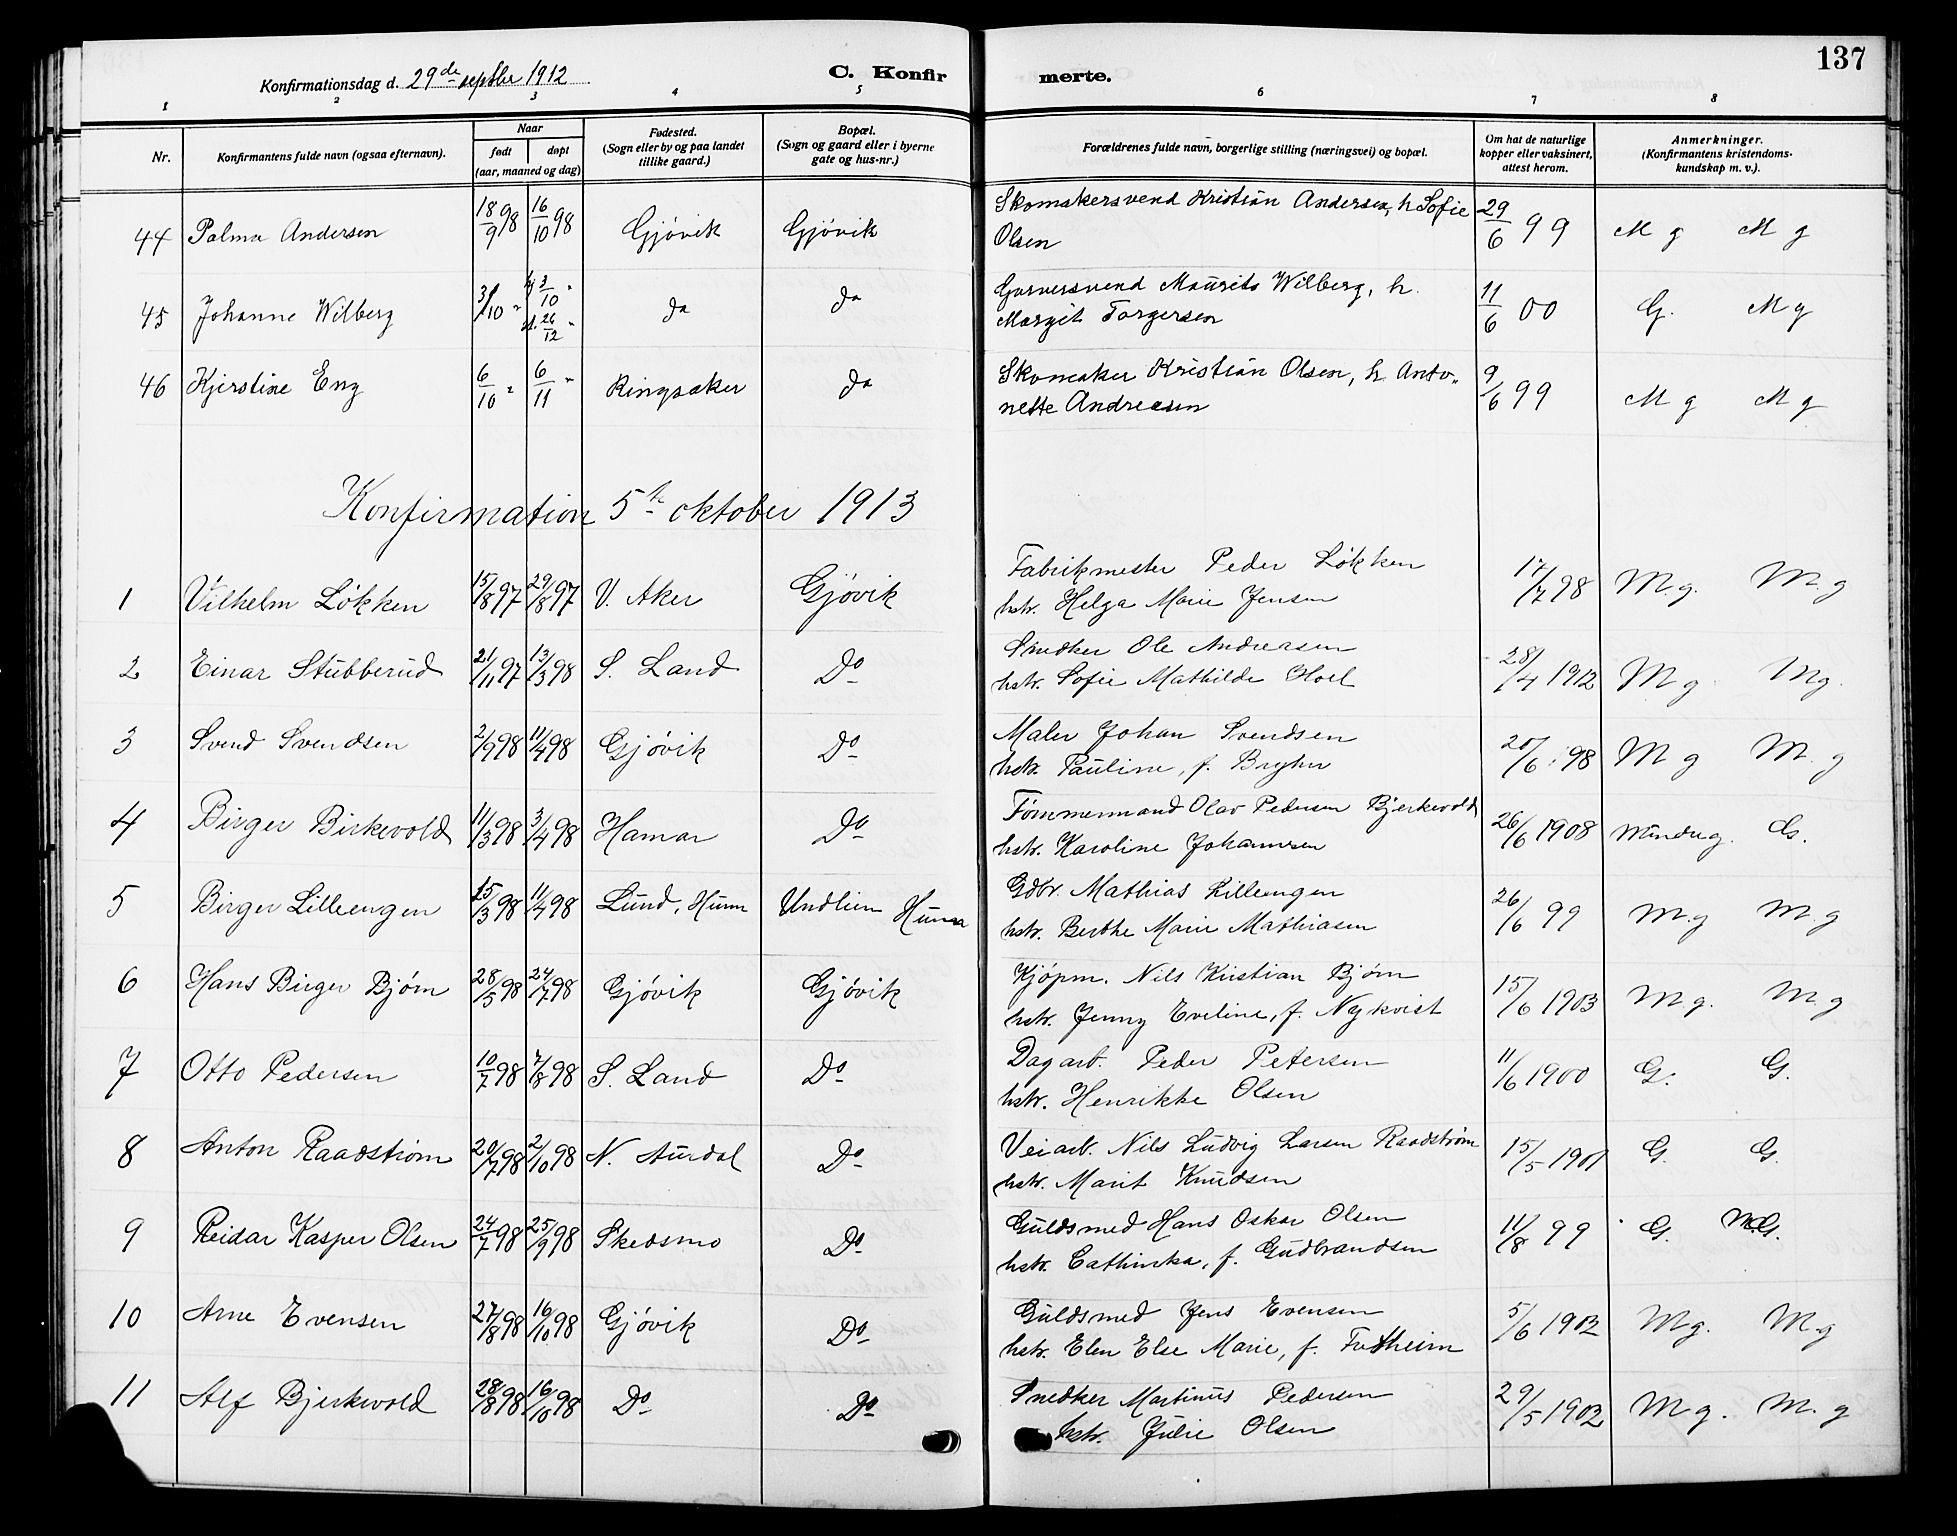 137
Konfirmationsdag d. 29de septbr 1912
C. Konfir merte.
1 2 3 4 5 6 7 8
Nr.
Konfirmantens fulde navn (ogsaa efternavn).
Naar
født
døpt
(aar, maaned og dag)
Fødested.
(Sogn eller by og paa landet
tillike gaard.)
Bopæl.
(Sogn og gaard eller i byerne
gate og hus-nr.)
Forældrenes fulde navn, borgerlige stilling (næringsvei) og bopæl.
Om hat de naturlige
kopper eller vaksinert,
attest herom.
Anmerkninger.
(Konfirmantens kristendoms-
kundskap m. v.).
44 Palma Andersen 18/9 98 16/10 98 Gjövik Gjövik Skomakersvend Kristian Andersen, h Sofie
Olsen 29/6 99 M g M g
45 Johanne Wilberg 3/10 " hj 3/10 " st. 26/12 " do do Garversvend Maurits Wilberg, h.
Margit Torgersen 11/6 00 G. M g
46 Kjerstine Eng 6/10 " 6/11 " Ringsaker do Skomaker Kristian Olsen, h Anto-
nette Andreasen 9/6 99 M g M g
Konfirmation 5te oktober 1913
1 Vilhelm Lökken 15/8 97 29/8 97 V. Aker Gjövik Fabrikmester Peder Lökken
hstr. Helga Marie Jensen 17/7 98 M g. M. g
2 Einar Stubberud 21/11 97 13/3 98 S. Land Do Snedker Ole Andreasen
hstr. Sofie Mathilde Hoel 28/4 1912 M g M g.
3 Svend Svendsen 2/9 98 11/4 98 Gjövik Do Maler Johan Svendsen
hstr. Pauline, f. Bryhn 20/6 98 M g M. g
4 Birger Birkevold 11/3 98 3/4 98 Hamar Do Tömmermand Olav Pedersen Bjerkevold
hstr. Karoline Johannesen 26/6 1908 Mindre g. G.
5 Birger Lilleengen 15/3 98 11/4 98 Lund, Hunn Undlien Hunn Gdbr. Mathias Lilleengen
hstr. Berthe Marie Mathiasen 26/6 99 M. g M. g
6 Hans Birger Björn 28/5 98 24/7 98 Gjövik Gjövik Kjöpm. Nils Kristian Björn
hstr. Jenny Eveline, f. Nykvist 15/6 1903 M g. M. g
7 Otto Pedersen 10/7 98 7/8 98 S. Land Do Dagarb. Peder Petersen
hstr. Henrikke Olsen 11/6 1900 G. G.
8 Anton Raadström 20/7 98 2/10 98 N. Aurdal Do Veiarb. Nils Ludvig Larsen Raadström
hstr. Marit Knudsen 15/5 1901 G. G.
9 Reidar Kasper Olsen 24/7 98 25/9 98 Skedsmo Do Guldsmed Hans Oskar Olsen
hstr. Cathinka, f. Gudbrandsen 11/8 99 G. M G.
10 Arne Evensen 27/8 98 16/10 98 Gjövik Do Guldsmed Jens Evensen
hstr. Elen Else Marie, f. 5/6 1902 M g. M. g
11 Alf Bjerkevold 28/8 98 16/10 98 Do Do Snedker Martinus Pedersen
hstr. Julie Olsen 29/5 1902 M g. M. g